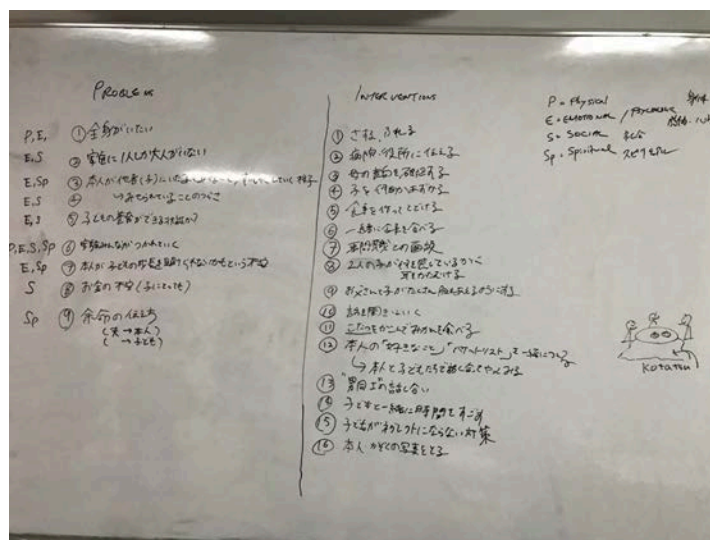 PROBLEMS
P,E, ① 全身がいたい
E,S ② 家庭に1人しか大人がいない
E,Sp ③ 本人が他者(子)に
E,S ④ ことのつらさ
E,S ⑤ 子どもの養育ができる状態か?
P,E,S,Sp ⑥ 家族みんながつかれていく
E,Sp ⑦ 本人が子どもの成長を見届けられないかもという不安
S ⑧ お金の不安(子にとっても)
Sp ⑨ 余命の伝え方
(夫→本人)
(→子ども)
INTERVENTIONS
① さする、ふれる
② 病院・役所に伝える
③ 母の意向を確認する
④ 子を何日かあずかる
⑤ 食事を作ってとどける
⑥ 一緒に食事を食べる
⑦ 専門職との面談
⑧ 2人の子が何を感じているかに
耳をかたむける
⑨ お父さんと子がたくさん
⑩ 話を聞きにいく
⑪ こたつをかこんでみかんを食べる
⑫ 本人の「好きなこと」「バケットリスト」を一緒につくる
↳ 本人と子どもたちで
⑬ "男同士"の話し合い
⑭ 子どもと一緒に時間をすごす
⑮ 子どもがネグレクトにならない対策
⑯ 本人・かぞくの写真をとる
P = Physical 身体
E = EMOTIONAL /
S = SOCIAL 社会
Sp = Spiritual スピリチュアル
Kotatsu